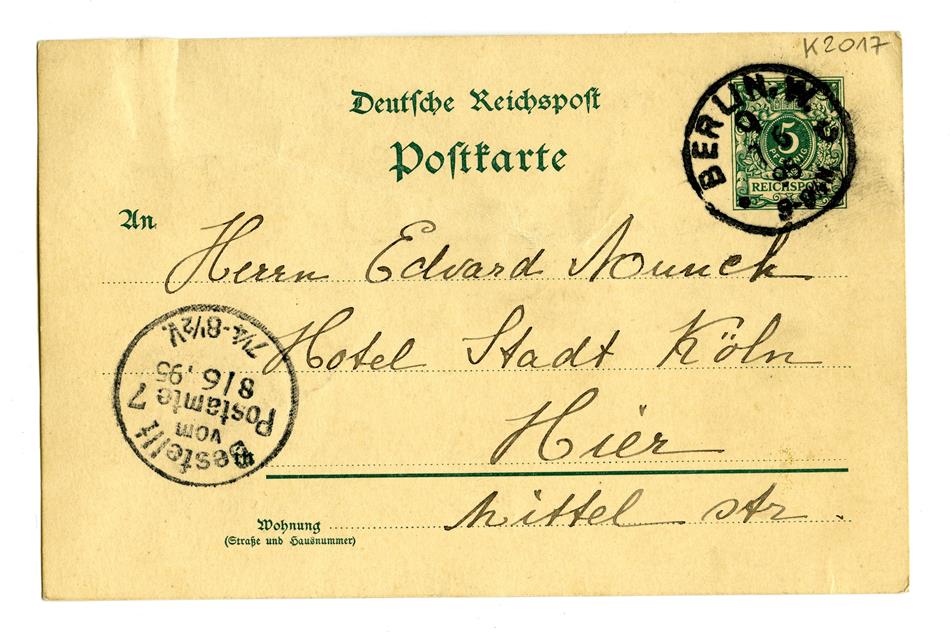 K2017
Deutsche Reichspost
Postkarte
BERLIN.W.
95
8-9N.
5
PFENNIG
REICHSPOST
An
Herrn Edvard Munch
Hotel Stadt Köln
Hier
Mittel str.
Bestellt
vom
Postamte 7
8/6.95
7¼-8½V.
Wohnung
(Straße und Hausnummer)